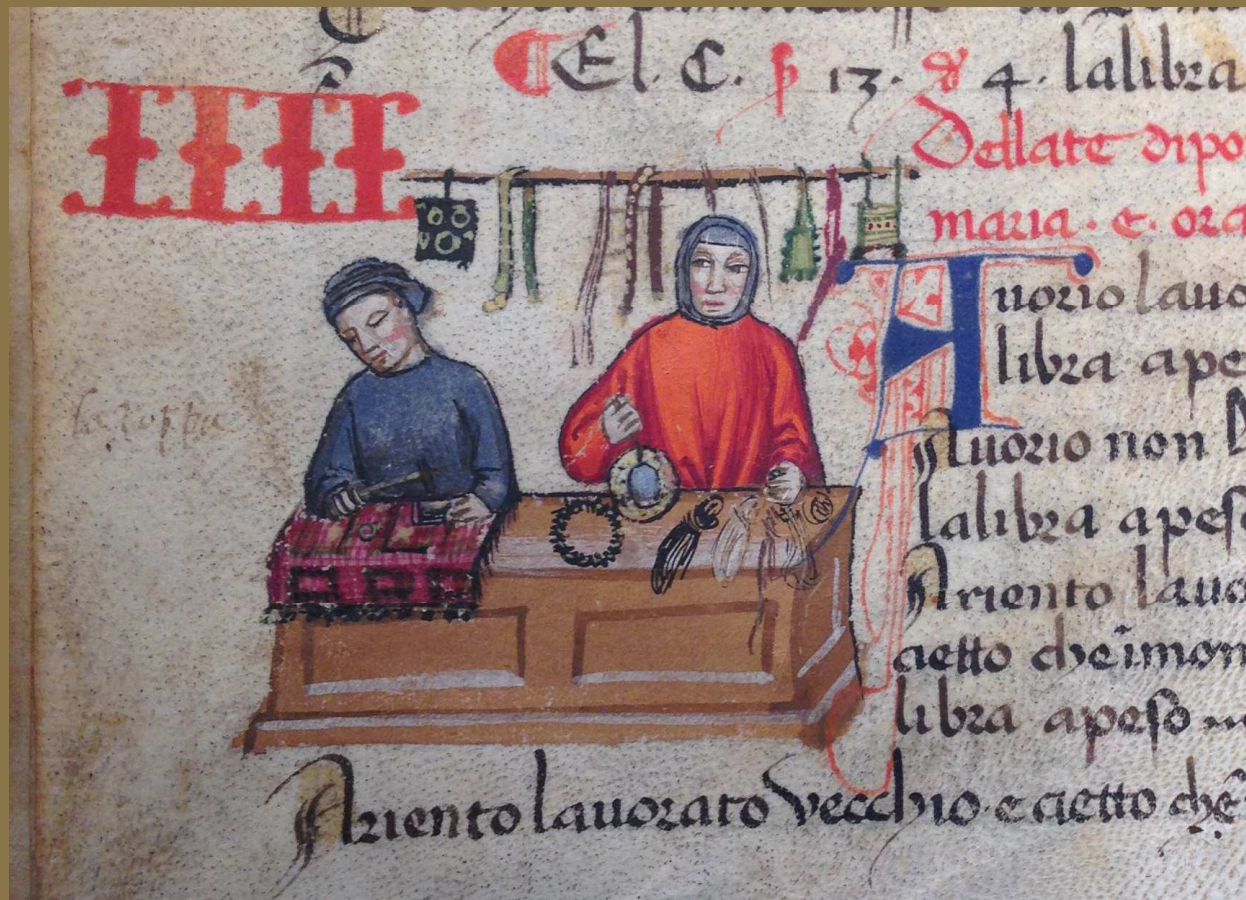 ¶ El. C. ß 13. ₰ 4. lalibra
IIII
Dellate dipo
maria. e. ora
Auorio lauo
libra ape
Auorio non l
lalibra apeso
Ariento lauo
cietto cheīmon
libra apeso
Ariento lauorato vecchio e cietto chē